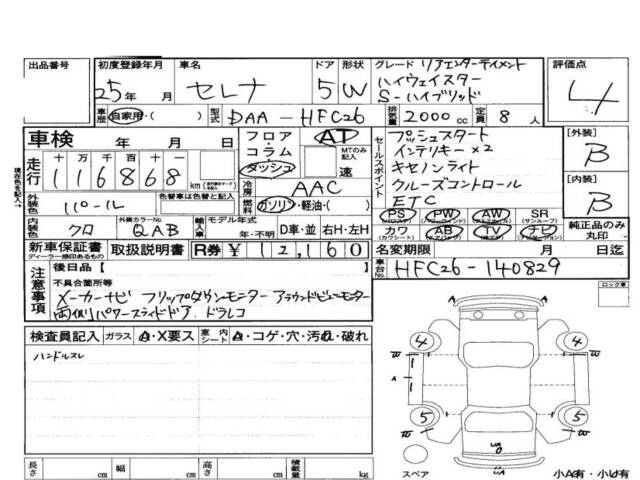 出品番号 初度登録年月 車名 ドア 形状 グレード リアエンターテイメント 評価点
25年 月 セレナ 5 W ハイウェイスター
S-ハイブリッド 4
車歴 自家用・( ) 型式 DAA-HFC26 排気量 2000cc 定員 8人
車検 年 月 日
フロア・コラム・ダッシュ AT MTのみ記入 速
セールスポイント プッシュスタート
インテリキー×2
キセノンライト
クルーズコントロール
ETC
[外装] B
[内装] B
現在色を記入→
走行 十万千百十一
116868 km
冷房 AAC
外装色 パール 色替車は色替と記入 燃料 ガソリン・軽油・( )
内装色 クロ 外装カラーNo. QAB 輸入車 モデル年式 年・不明 D車・並 右H・左H
PS PW AW SR(サンルーフ)
カワ(カワシート) AB TV ナビ 純正品のみ丸印
新車保証書 取扱説明書 R券 ¥12,160
ディーラー捺印あるもの
名変期限 月 日迄
車台No. HFC26-140829
注意事項 後日品[ ]
不具合箇所等
メーカーナビ フリップダウンモニター アラウンドビューモニター
両側パワースライドドア. ドラレコ
ロック車
検査員記入 ガラス A・X要ス 室内シート A・コゲ・穴・汚れ・破れ
ハンドルスレ
4 4
W W
A 1 1
5 5
W W
UA
UA
スペア 小A有・小U有
長さ cm 幅 cm 高さ cm 積載量 kg